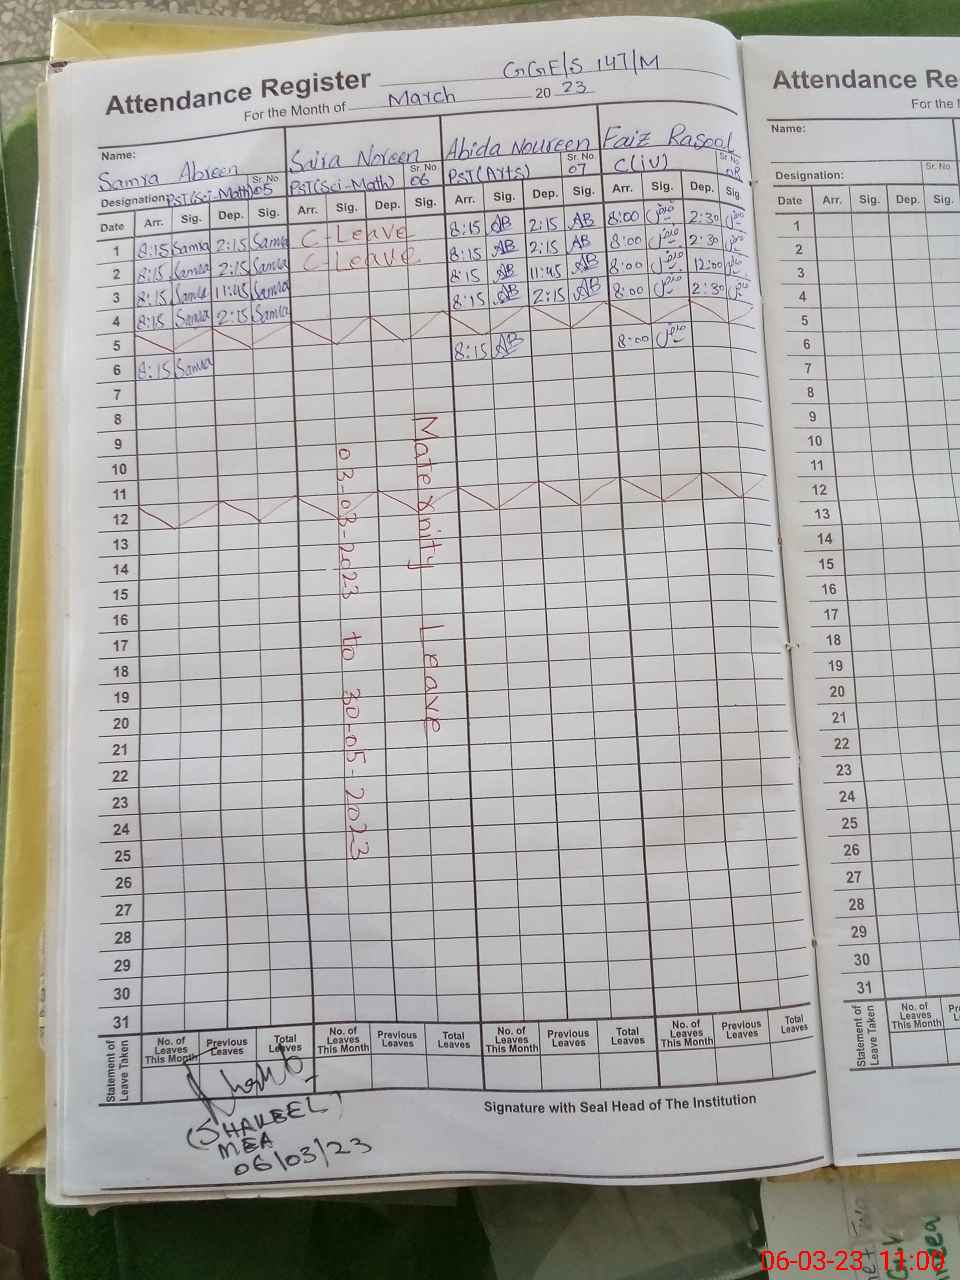 Attendance Register GGE/S 147/M
For the Month of March 2023
Name: Samra Abreen Saira Noreen Abida Noureen Faiz Rasool
Designation: PST(Sci-Math) Sr. No. 05 PST(Sci-Math) Sr. No. 06 PST(Arts) Sr. No. 07 C(iv) Sr. No. 08
Date Arr. Sig. Dep. Sig. Arr. Sig. Dep. Sig. Arr. Sig. Dep. Sig. Arr. Sig. Dep. Sig.
1 8:15 Samra 2:15 Samra C-Leave 8:15 AB 2:15 AB 8:00 2:30
2 8:15 Samra 2:15 Samra C-Leave 8:15 AB 2:15 AB 8:00 2:30
3 8:15 Samra 11:45 Samra 8:15 AB 11:45 AB 8:00 12:00
4 8:15 Samra 2:15 Samra 8:15 AB 2:15 AB 8:00 2:30
5
6 8:15 Samra 8:15 AB 8:00
7
8
9
10
11
12
13
14
15
16
17
18
19
20
21
22
23
24
25
26
27
28
29
30
31
Maternity Leave
03-03-2023 to 30-05-2023
Statement of Leave Taken
No. of Leaves This Month Previous Leaves Total Leaves No. of Leaves This Month Previous Leaves Total Leaves No. of Leaves This Month Previous Leaves Total Leaves No. of Leaves This Month Previous Leaves Total Leaves
Signature with Seal Head of The Institution
(SHAKEEL)
MEA
06/03/23
Attendance Re
For the
Name:
Designation: Sr. No.
Date Arr. Sig. Dep. Sig.
1
2
3
4
5
6
7
8
9
10
11
12
13
14
15
16
17
18
19
20
21
22
23
24
25
26
27
28
29
30
31
Statement of Leave Taken
No. of Leaves This Month
06-03-23 11:00